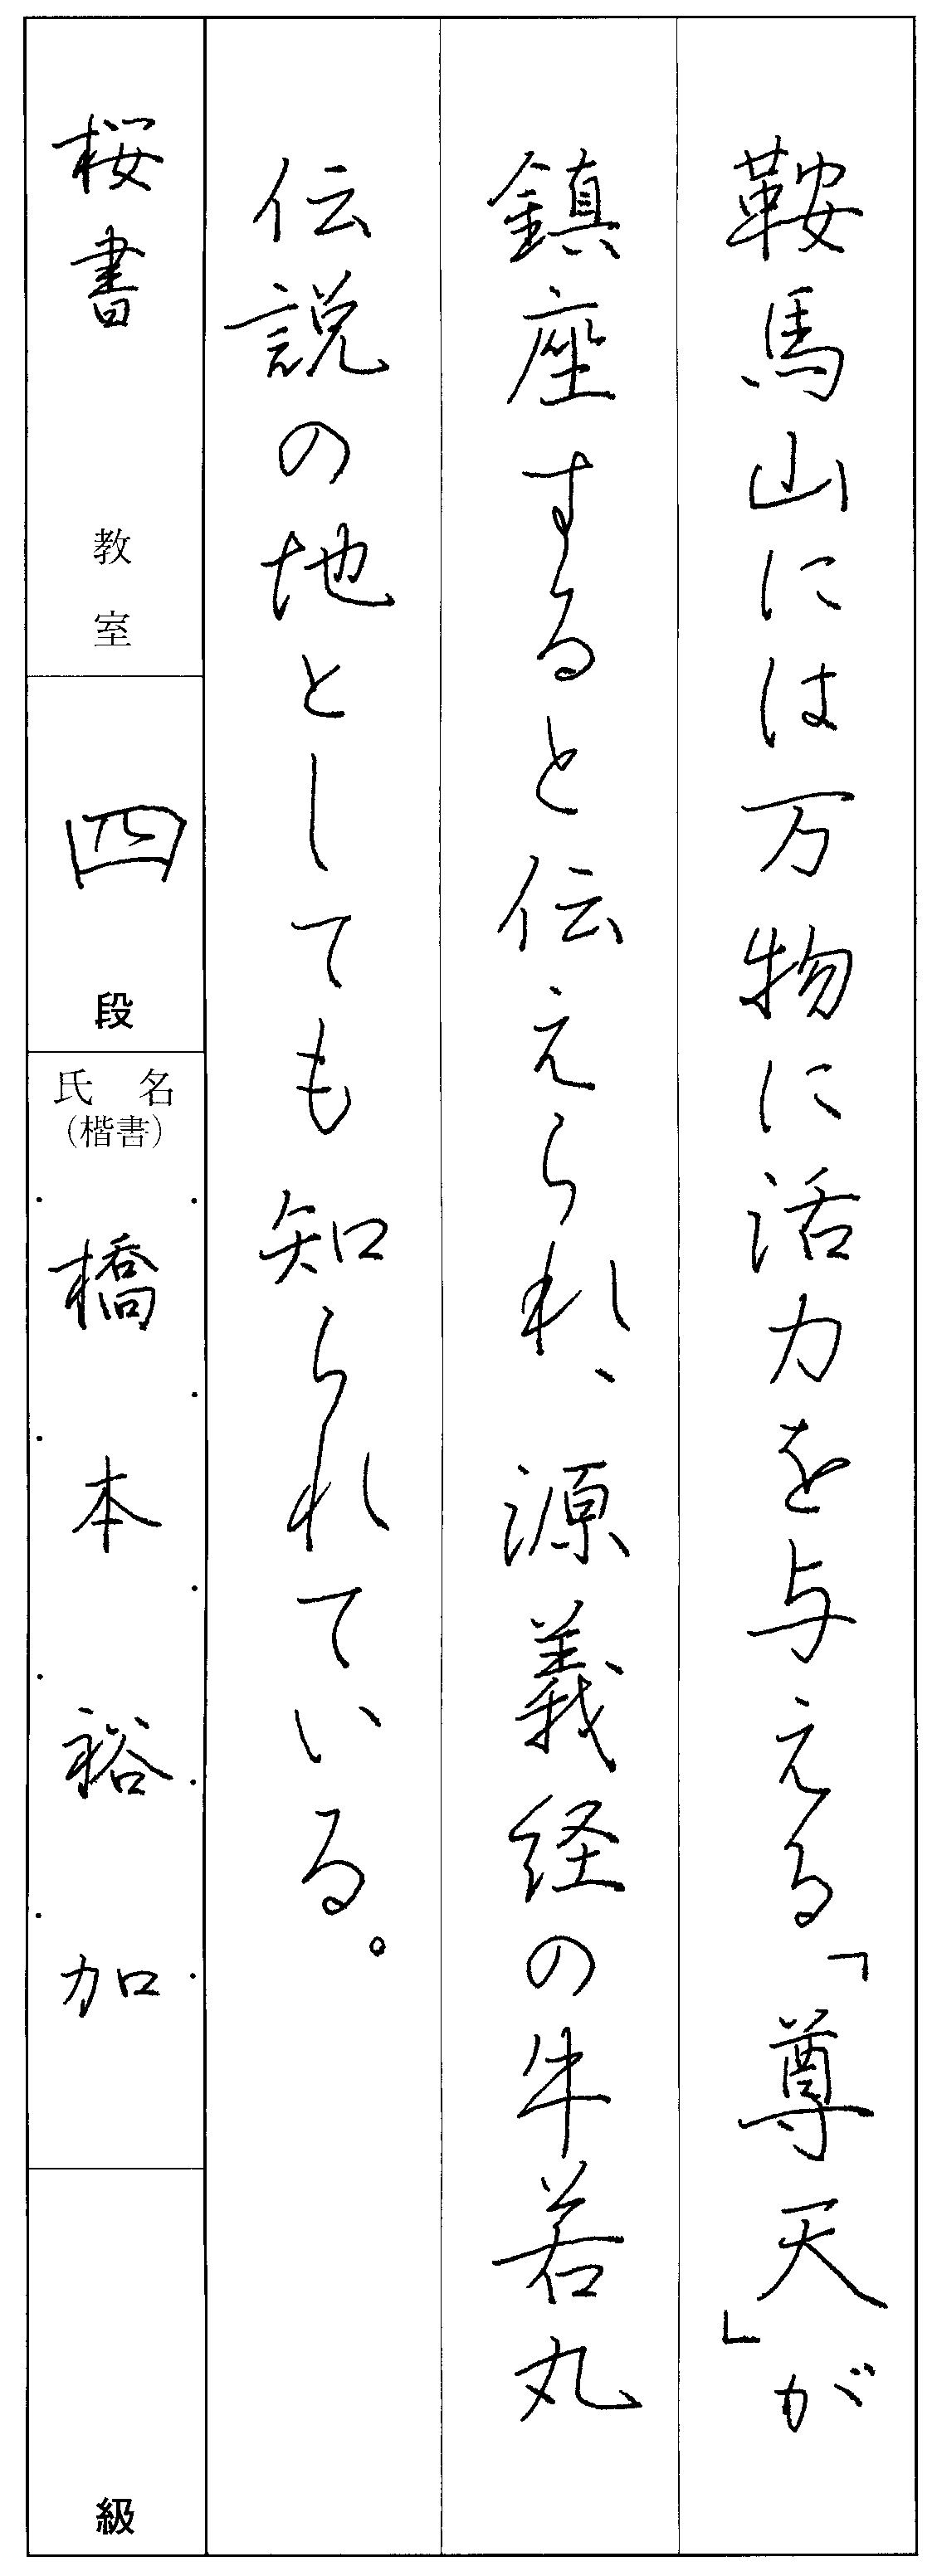 鞍馬山には万物に活力を与える「尊天」が
鎮座すると伝えられ、源義経の牛若丸
伝説の地としても知られている。
桜書 教室
四 段
氏名
(楷書)
橋本裕加
級